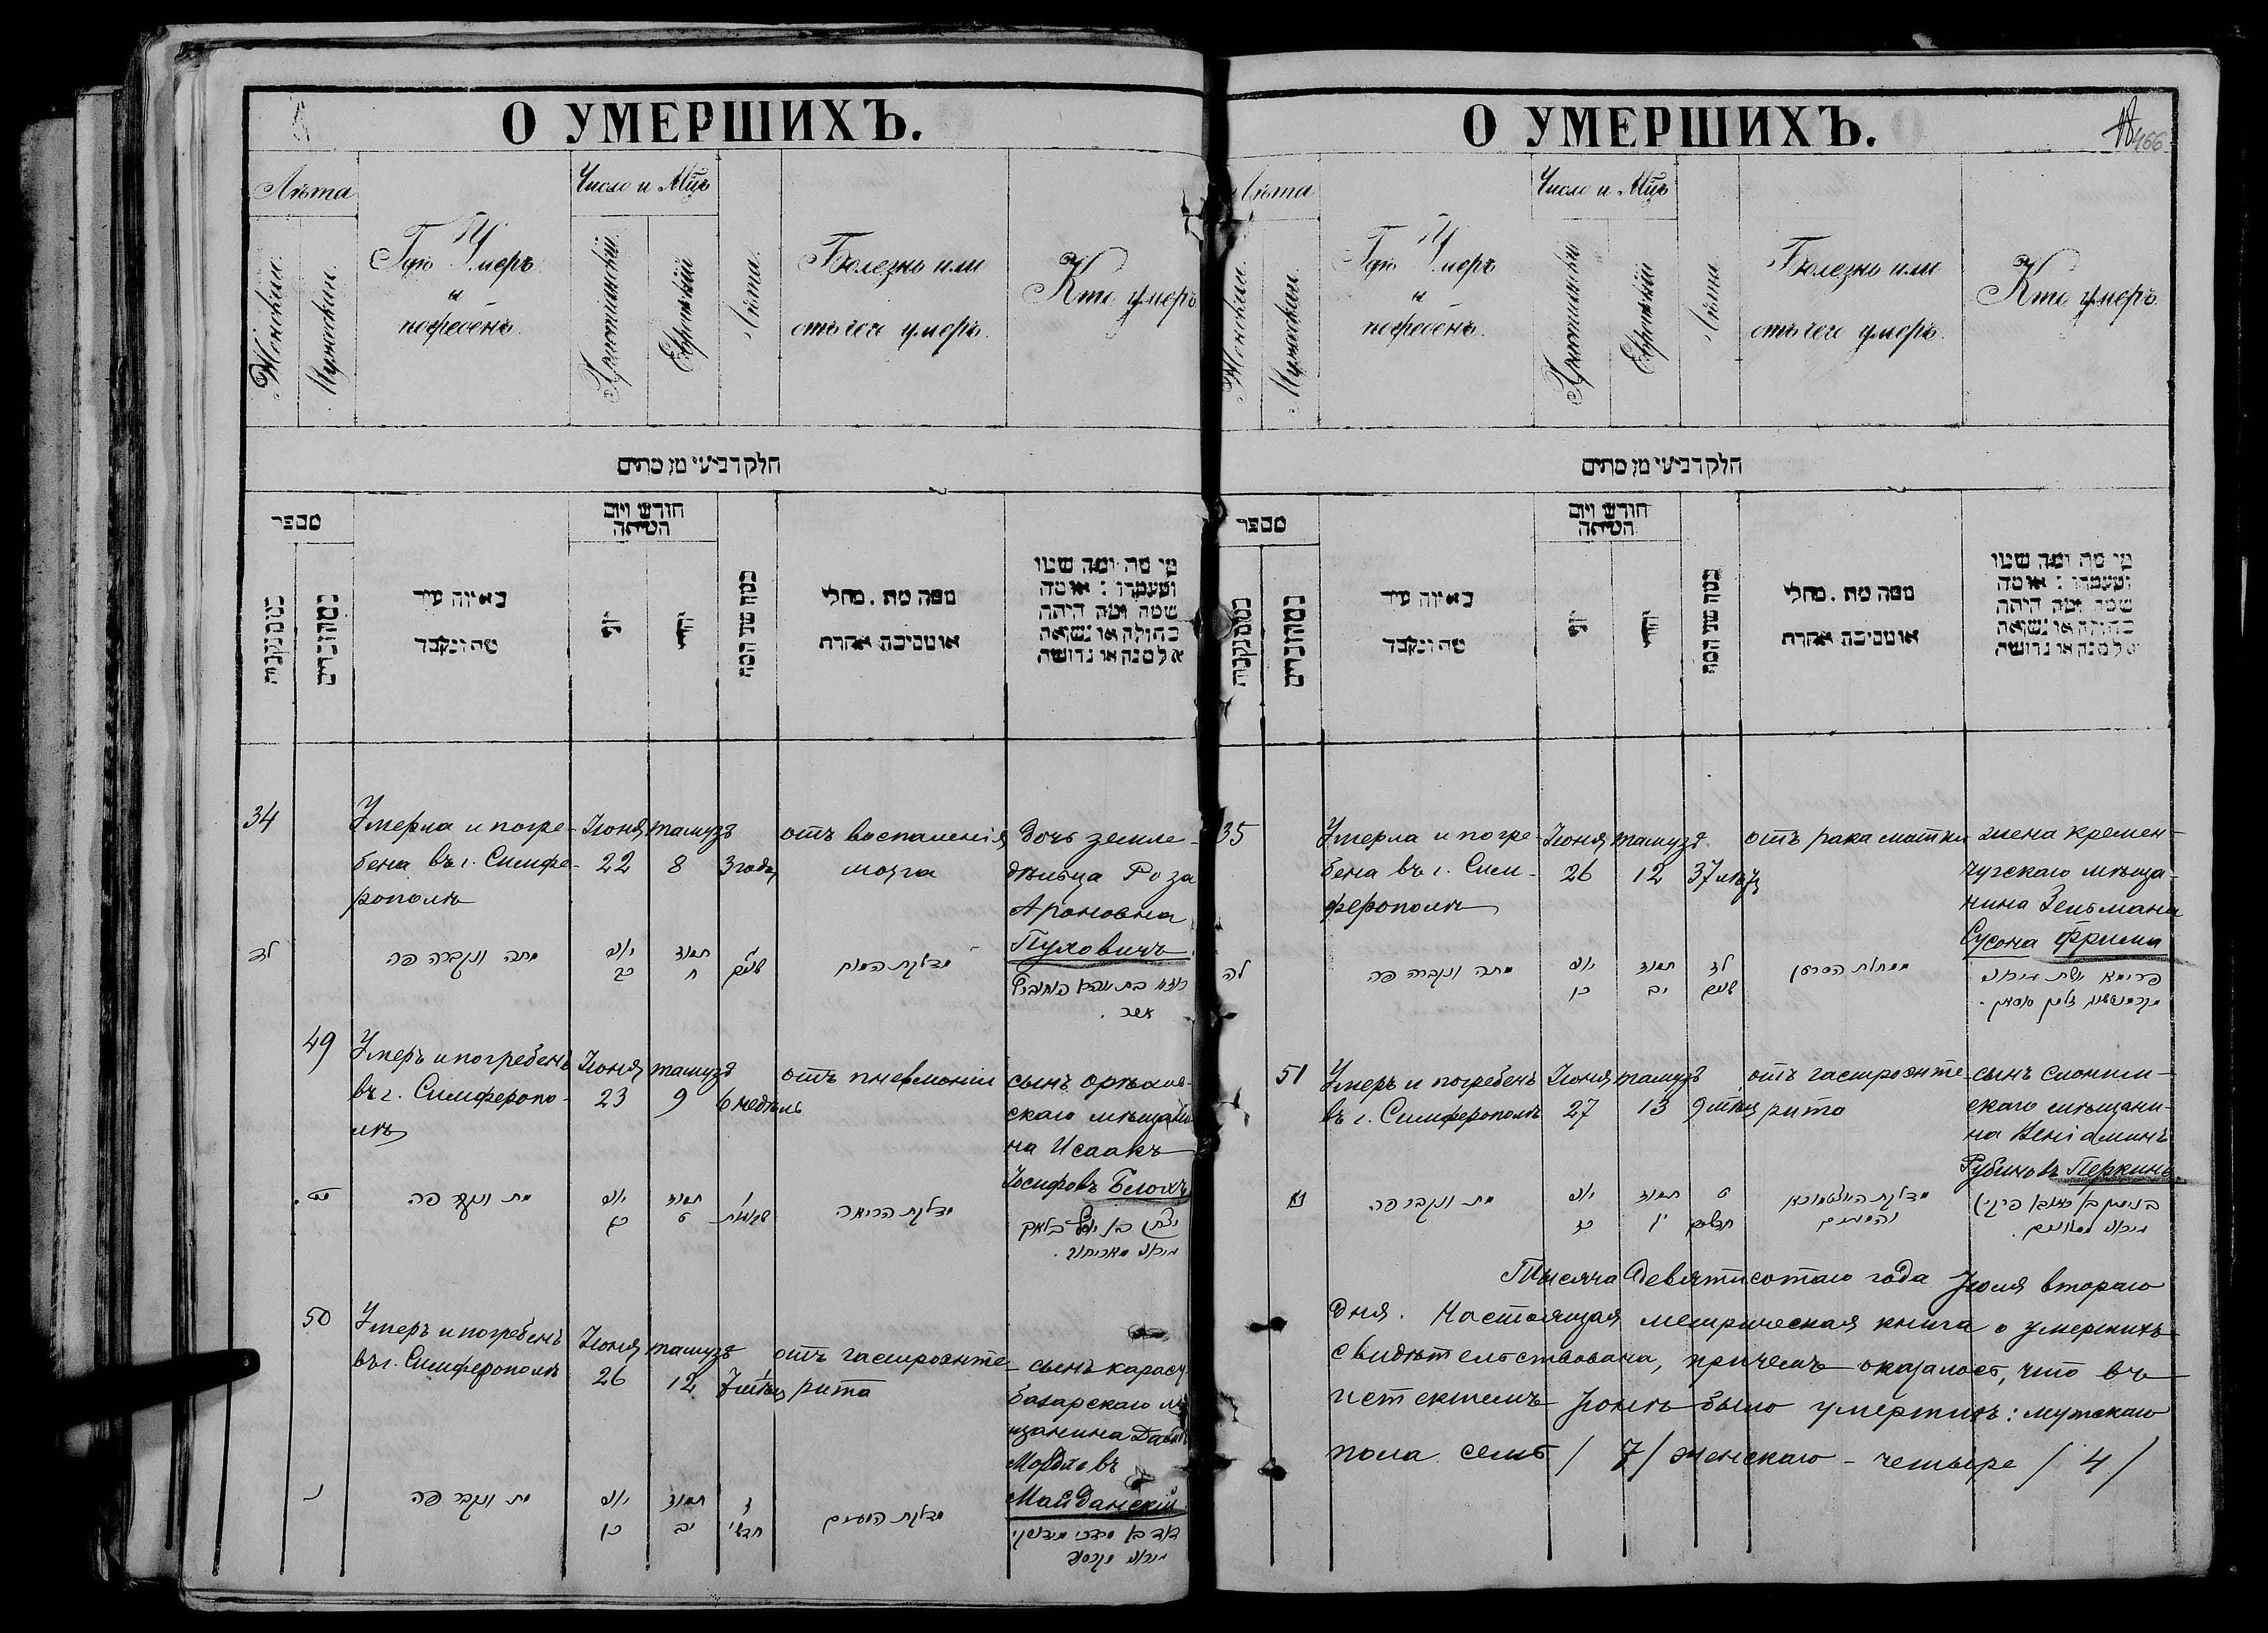 О УМЕРШИХЪ.
Лѣта
Женскихъ.
Мужескихъ.
Гдѣ Умеръ
и
погребенъ
Число и Мѣцъ
Христіанскій
Еврейскій
Лѣта.
Болезнь или
отъ чего умеръ.
Кто умеръ
חלק רביעי מן מתים
מספר
באיזה עיר
מת ונקבר
חודש ויום
המיתה
ממה מת . מחלי
או מסיבה אחרת
מי מת ומה שמו
ומעמדו : או מה
שמה ומה היתה
בתולה או נשואה
אלמנה או גרושה
34
Умерла и погре-
бена въ г. Симфе-
рополѣ
Іюня
22
тамузъ
8
3 года
отъ воспаленія
мозга
дочь земле-
дѣльца Роза
Ароновна
Пуховичъ
לד
מתה ונקברה פה
תמוז
ח
49
Умеръ и погребенъ
въ г. Симферопо-
лѣ
Іюня
23
тамузъ
9
6 недѣль
отъ пневмоніи
сынъ орѣхов-
скаго мѣщани-
на Исаакъ
Іосифовъ Белохъ
מט
מת ונקבר פה
תמוז
ט
50
Умеръ и погребенъ
въ г. Симферополѣ
Іюня
26
тамузъ
12
7 мѣсц
отъ гастроэнте-
рита
сынъ карасу-
базарскаго мѣ-
щанина Давидъ
Мордковъ
Майданскій
נ
מת ונקבר פה
תמוז
יב
О УМЕРШИХЪ.
466
Лѣта
Женскихъ.
Мужескихъ.
Гдѣ Умеръ
и
погребенъ.
Число и Мѣцъ
Христіанскій
Еврейскій
Лѣта.
Болезнь или
отъ чего умеръ.
Кто умеръ.
חלק רביעי מן מתים
מספר
באיזה עיר
מת ונקבר
חודש ויום
המיתה
ממה מת . מחלי
או מסיבה אחרת
מי מת ומה שמו
ומעמדו : או מה
שמה ומה היתה
בתולה או נשואה
אלמנה או גרושה
35
Умерла и погре-
бена въ г. Сим-
ферополѣ
Іюня
26
тамузъ
12
37 лѣтъ
отъ рака матки
жена кремен-
чугскаго мѣща-
нина Зельмана
Сусона Фрима
לה
מתה ונקברה פה
תמוז
יב
ממחלת הסרטן
51
Умеръ и погребенъ
въ г. Симферополѣ
Іюня
27
тамузъ
13
9 мѣсц
отъ гастроэнте-
рита
сынъ слоним-
скаго мѣщани-
на Веніаминъ
Рубиновъ Перкинъ
נא
מת ונקבר פה
תמוז
יג
Тысяча Девятисотаго года Іюля втораго
дня. Настоящая метрическая книга о умершихъ
свидѣтельствована, причемъ оказалось, что въ
истекшемъ Іюнѣ было умершихъ: мужскаго
пола семь / 7 / женскаго - четыре / 4 /